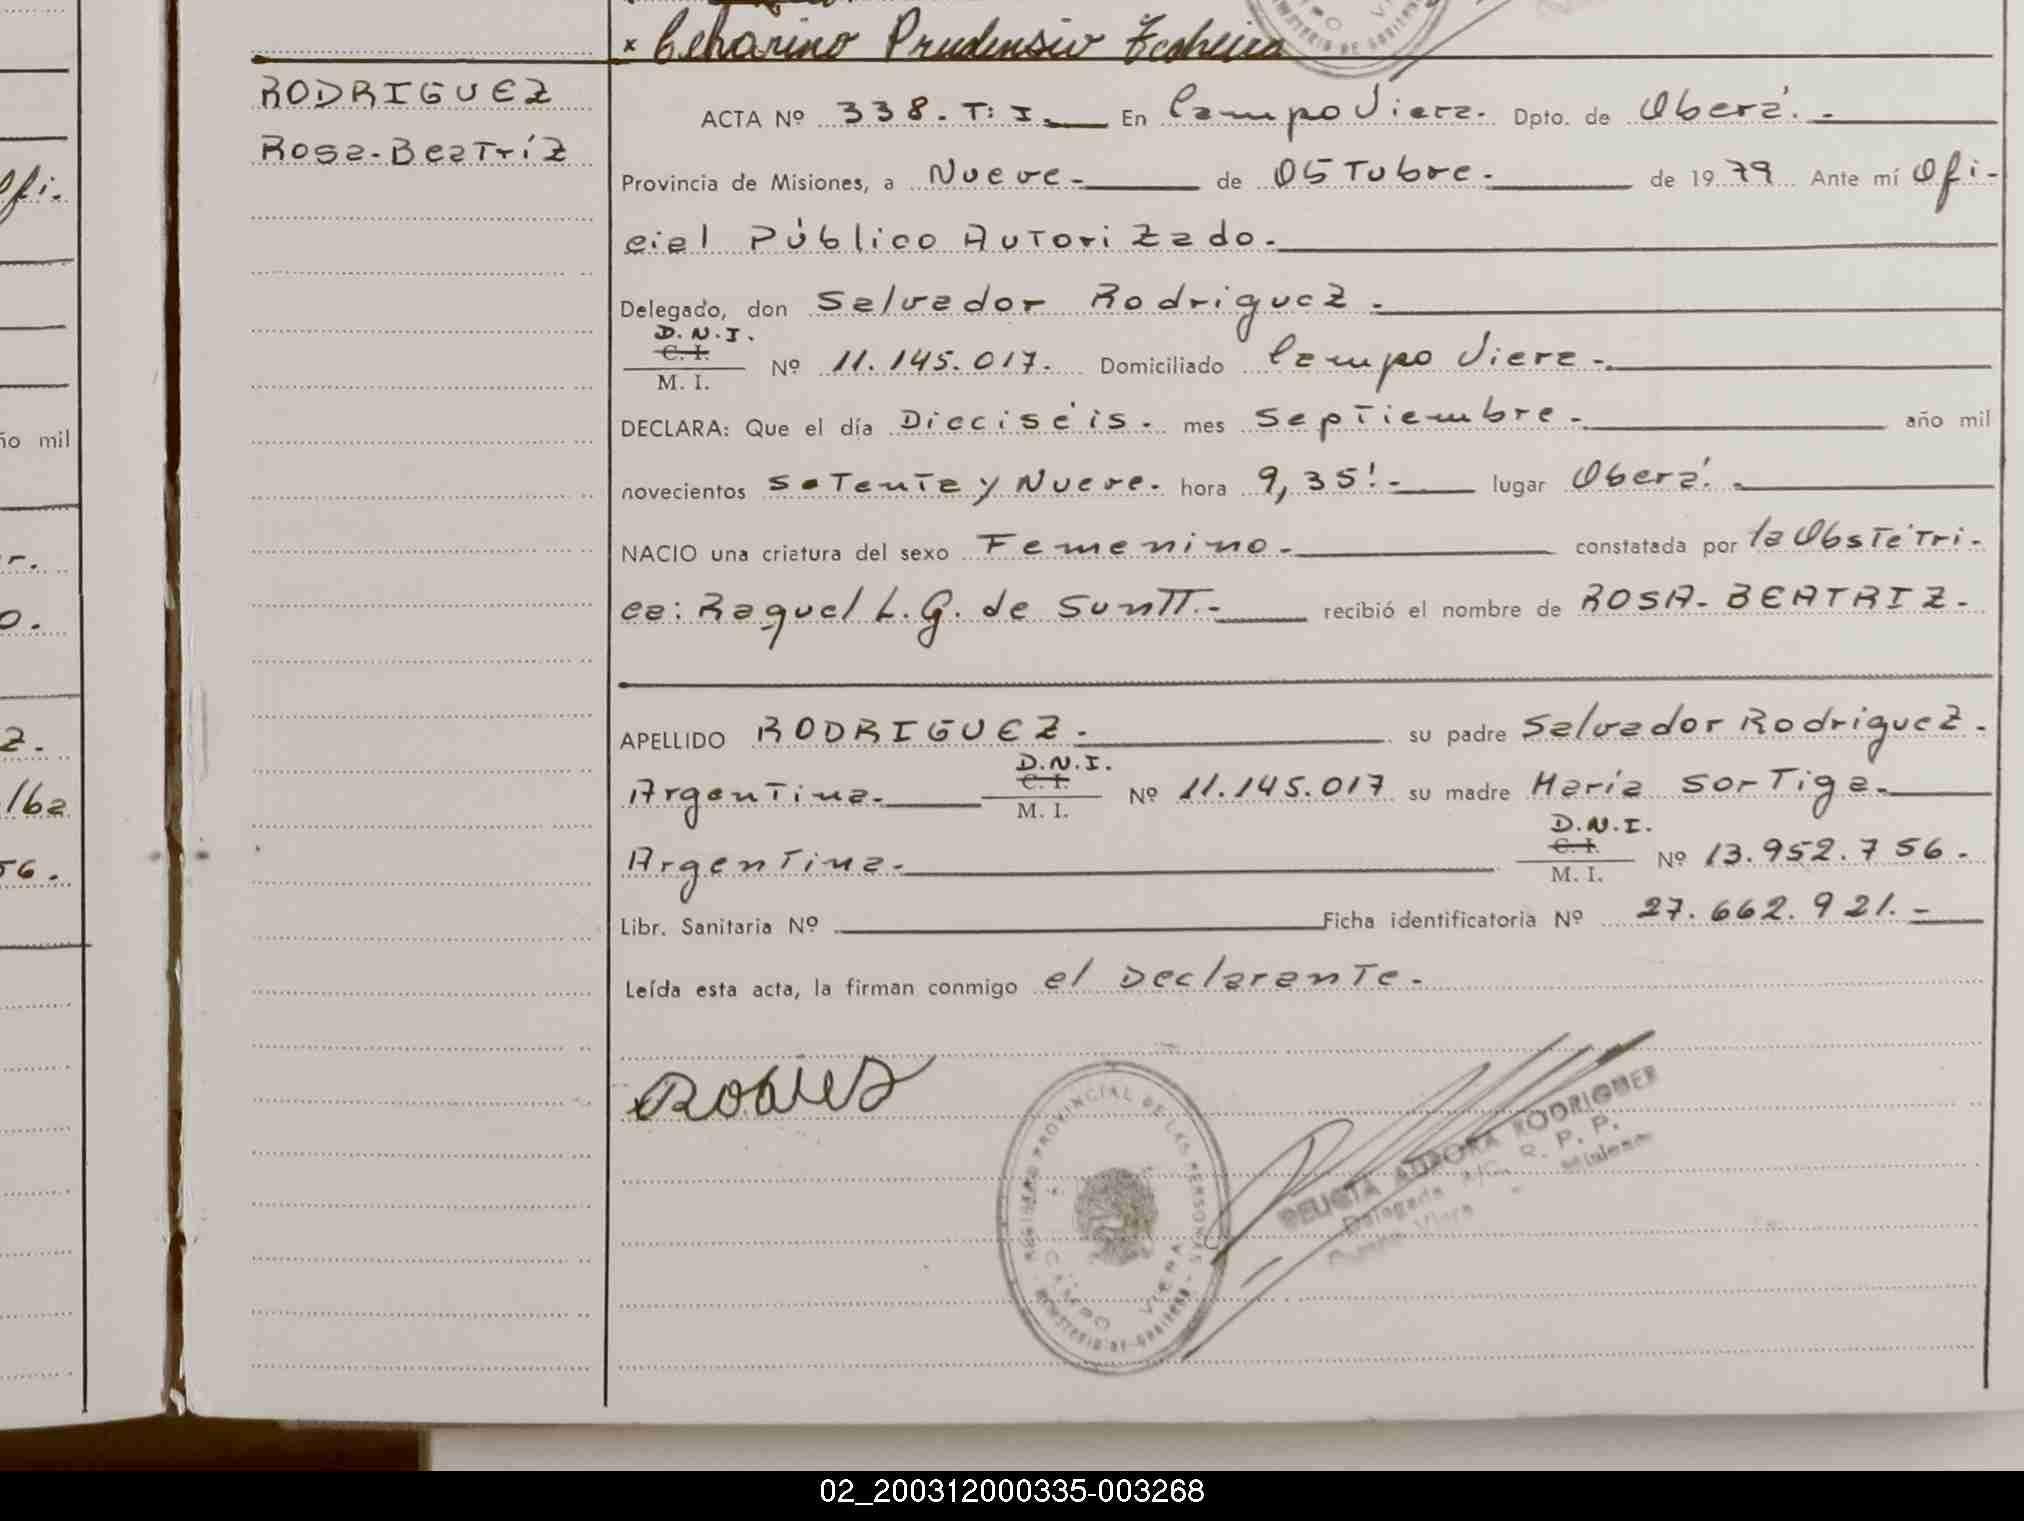 x Ceharino Prudensio
RODRIGUEZ
Rosa-Beatríz
ACTA Nº 338. T: I. En Campo Viera. Dpto. de Oberá.-
Provincia de Misiones, a Nueve.- de OcTubre.- de 1979 Ante mí Ofi-
cial Público Autorizado.-
Delegado, don Salvador Rodriguez.-
D.N.I.
C. I.
M. I.
Nº 11.145.017. Domiciliado Campo Viera.-
DECLARA: Que el día Dieciséis. mes Septiembre.- año mil
novecientos Setenta y Nueve. hora 9,35!- lugar Oberá.-
NACIO una criatura del sexo Femenino.- constatada por la Obstétri-
ca: Raquel L.G. de Suntt.- recibió el nombre de ROSA-BEATRIZ.-
APELLIDO RODRIGUEZ.- su padre Salvador Rodriguez.
Argentina.- D.N.I. C. I. M. I. Nº 11.145.017 su madre María Sortiga.-
Argentina.- D.N.I. C. I. M. I. Nº 13.952.756.-
Libr. Sanitaria Nº Ficha identificatoria Nº 27.662.921.-
Leída esta acta, la firman conmigo el Declarante.-
REGISTRO PROVINCIAL DE LAS PERSONAS
CAMPO VIERA
MINISTERIO DE GOBIERNO
AURORA
Delegada A/C. R. P. P.
Viera Misiones
Ofi.
ño mil
r.
o.
z.
lba
56.
02_200312000335-003268